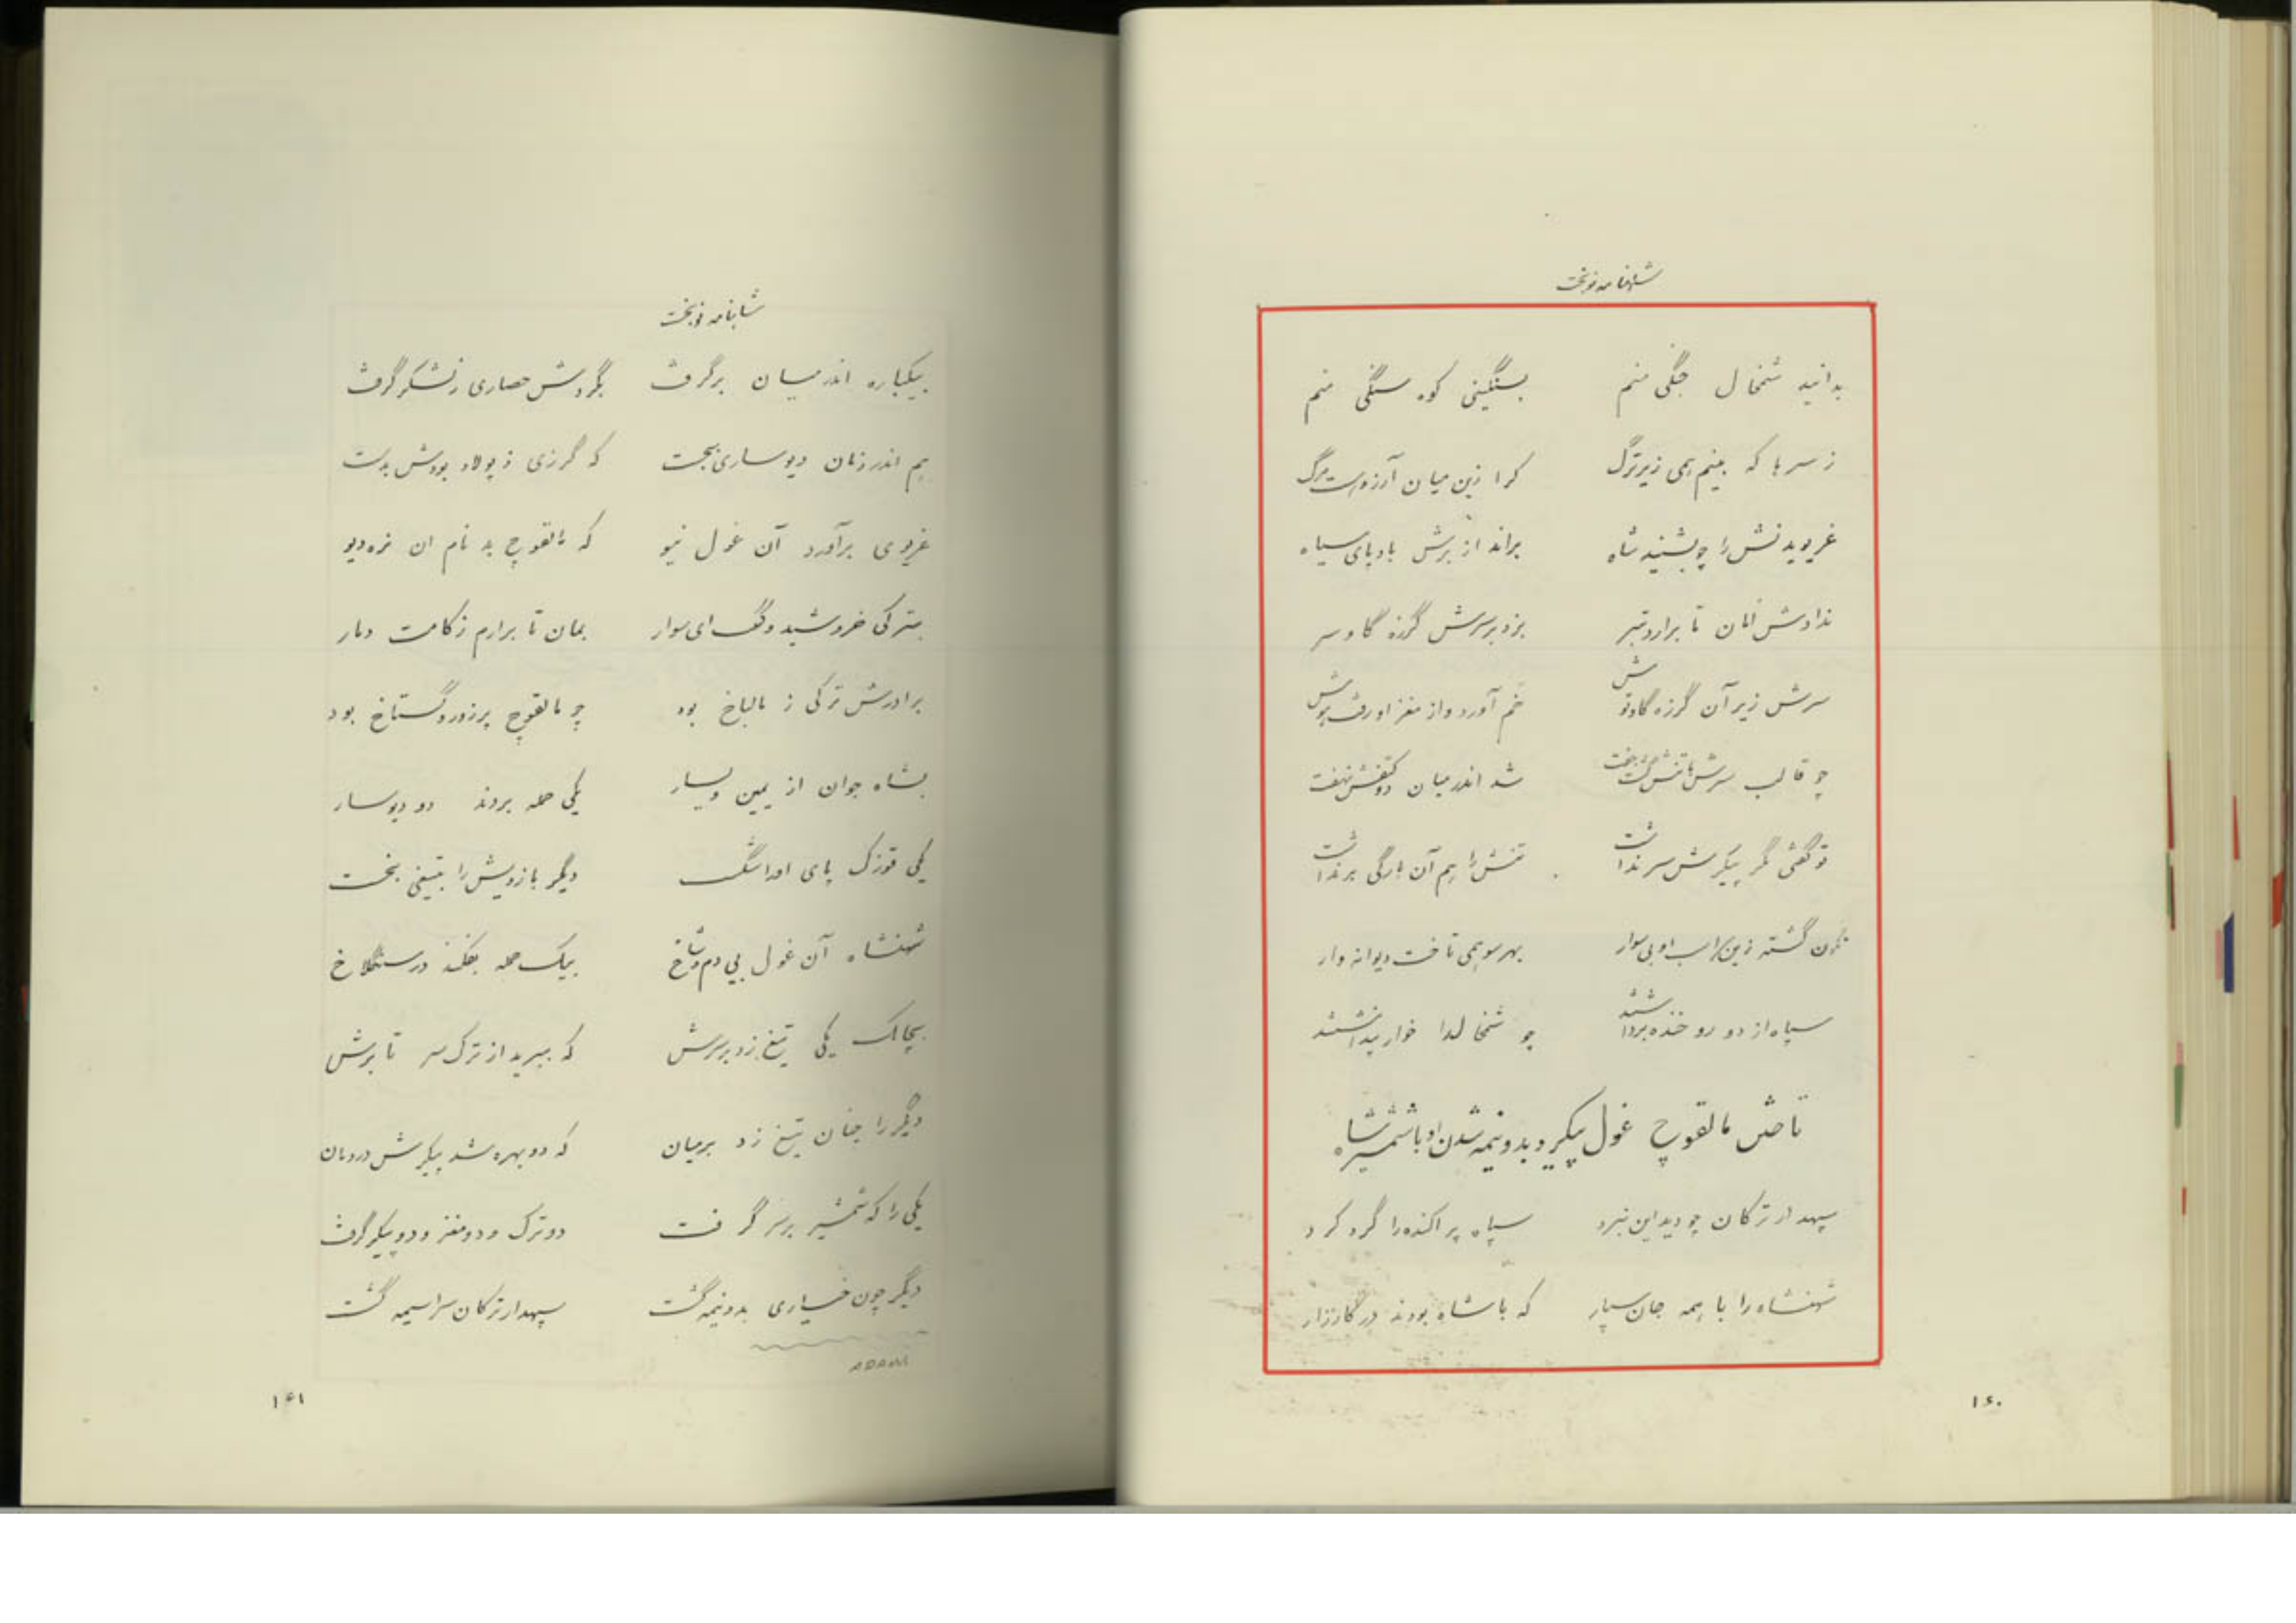 شاهنامه نوبخت
بدانید شنخال جنگی منم بسنگینی کوه سنگی منم
ز سرها که بینم همی زیر ترگ کرا زین میان آرزوست مرگ
غریویدنش را چو بشنید شاه براند از برش بادپای سیاه
ندادش امان تا برارد تبر بزد بر سرش گرزه گاوسر
سرش زیر آن گرزه گاودوش خم آورد و از مغز او رفت هوش
چو قالب سرش با تنش گشت جفت شد اندر میان دو کتفش نهفت
تو گفتی مگر پیکرش سر نداشت تنش را هم آن بارگی بر نداشت
نگون گشته زین اسب او بی سوار بهر سو همی تاخت دیوانه وار
سپاه از دو رو خنده برداشتند چو شنخال را خوار پنداشتند
تاختن مالقوج غول پیکر و بدو نیمه شدن او با شمشیر شاه
سپهدار ترکان چو دید این نبرد سپاه پراکنده را گرد کرد
شهنشاه را با همه جان سپار که با شاه بودند در کارزار
۱۶۰
شاهنامه نوبخت
بیکباره اندر میان برگرفت بگردش حصاری ز لشکر گرفت
هم اندر زمان دیوساری بجست که گرزی ز پولاد بودش بدست
غریوی برآورد آن غول نیو که مالقوج بد نام ان نره دیو
بترکی خروشید و گفت ای سوار بمان تا برارم ز کامت دمار
برادرش ترکی ز مالباخ بود چو مالقوج پرزور و گستاخ بود
بشاه جوان از یمین و یسار یکی حمله بردند دو دیوسار
یکی قوزک پای او را شکست دیگر بازویش را بتیغی بخست
شهنشاه آن غول بی دم و شاخ بیک حمله بفکند در سنگلاخ
بچالک یکی تیغ زد بر سرش که ببرید از ترک سر تا برش
دیگر را چنان تیغ زد بر میان که دو بهره شد پیکرش در زمان
یکی را که شمشیر بر سر گرفت دو ترک و دو مغز و دو پیکر گرفت
دیگر چون خیاری بدو نیمه گشت سپهدار ترکان سراسیمه گشت
۱۶۱